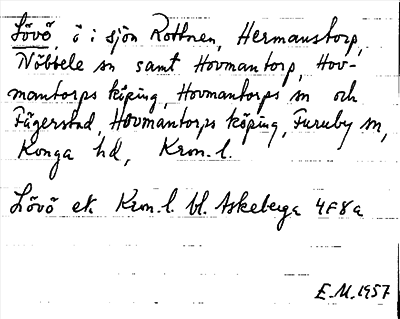 Lövö, ö i sjön Rottnen, Hermanstorp,
Nöbbele sn samt Hovmantorp, Hov-
mantorps köping, Hovmantorps sn och
Fägerstad, Hovmantorps köping, Furuby sn,
Konga hd, Kron. l.
Lövö ek. Kron. l. bl. Askeberga 4F8a
E.M. 1957